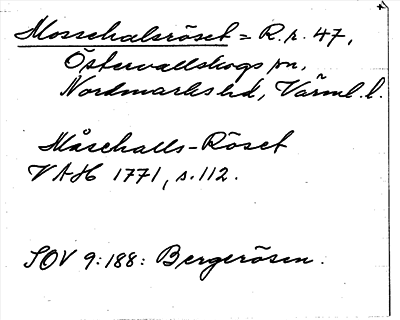 Mosschalsröset = R.r. 47,
Östervallskogs sn,
Nordmarks hd, Värml. l.
Måschalls-Röset
VAH 1771, s. 112.
SOV 9:188: Bergerösen.